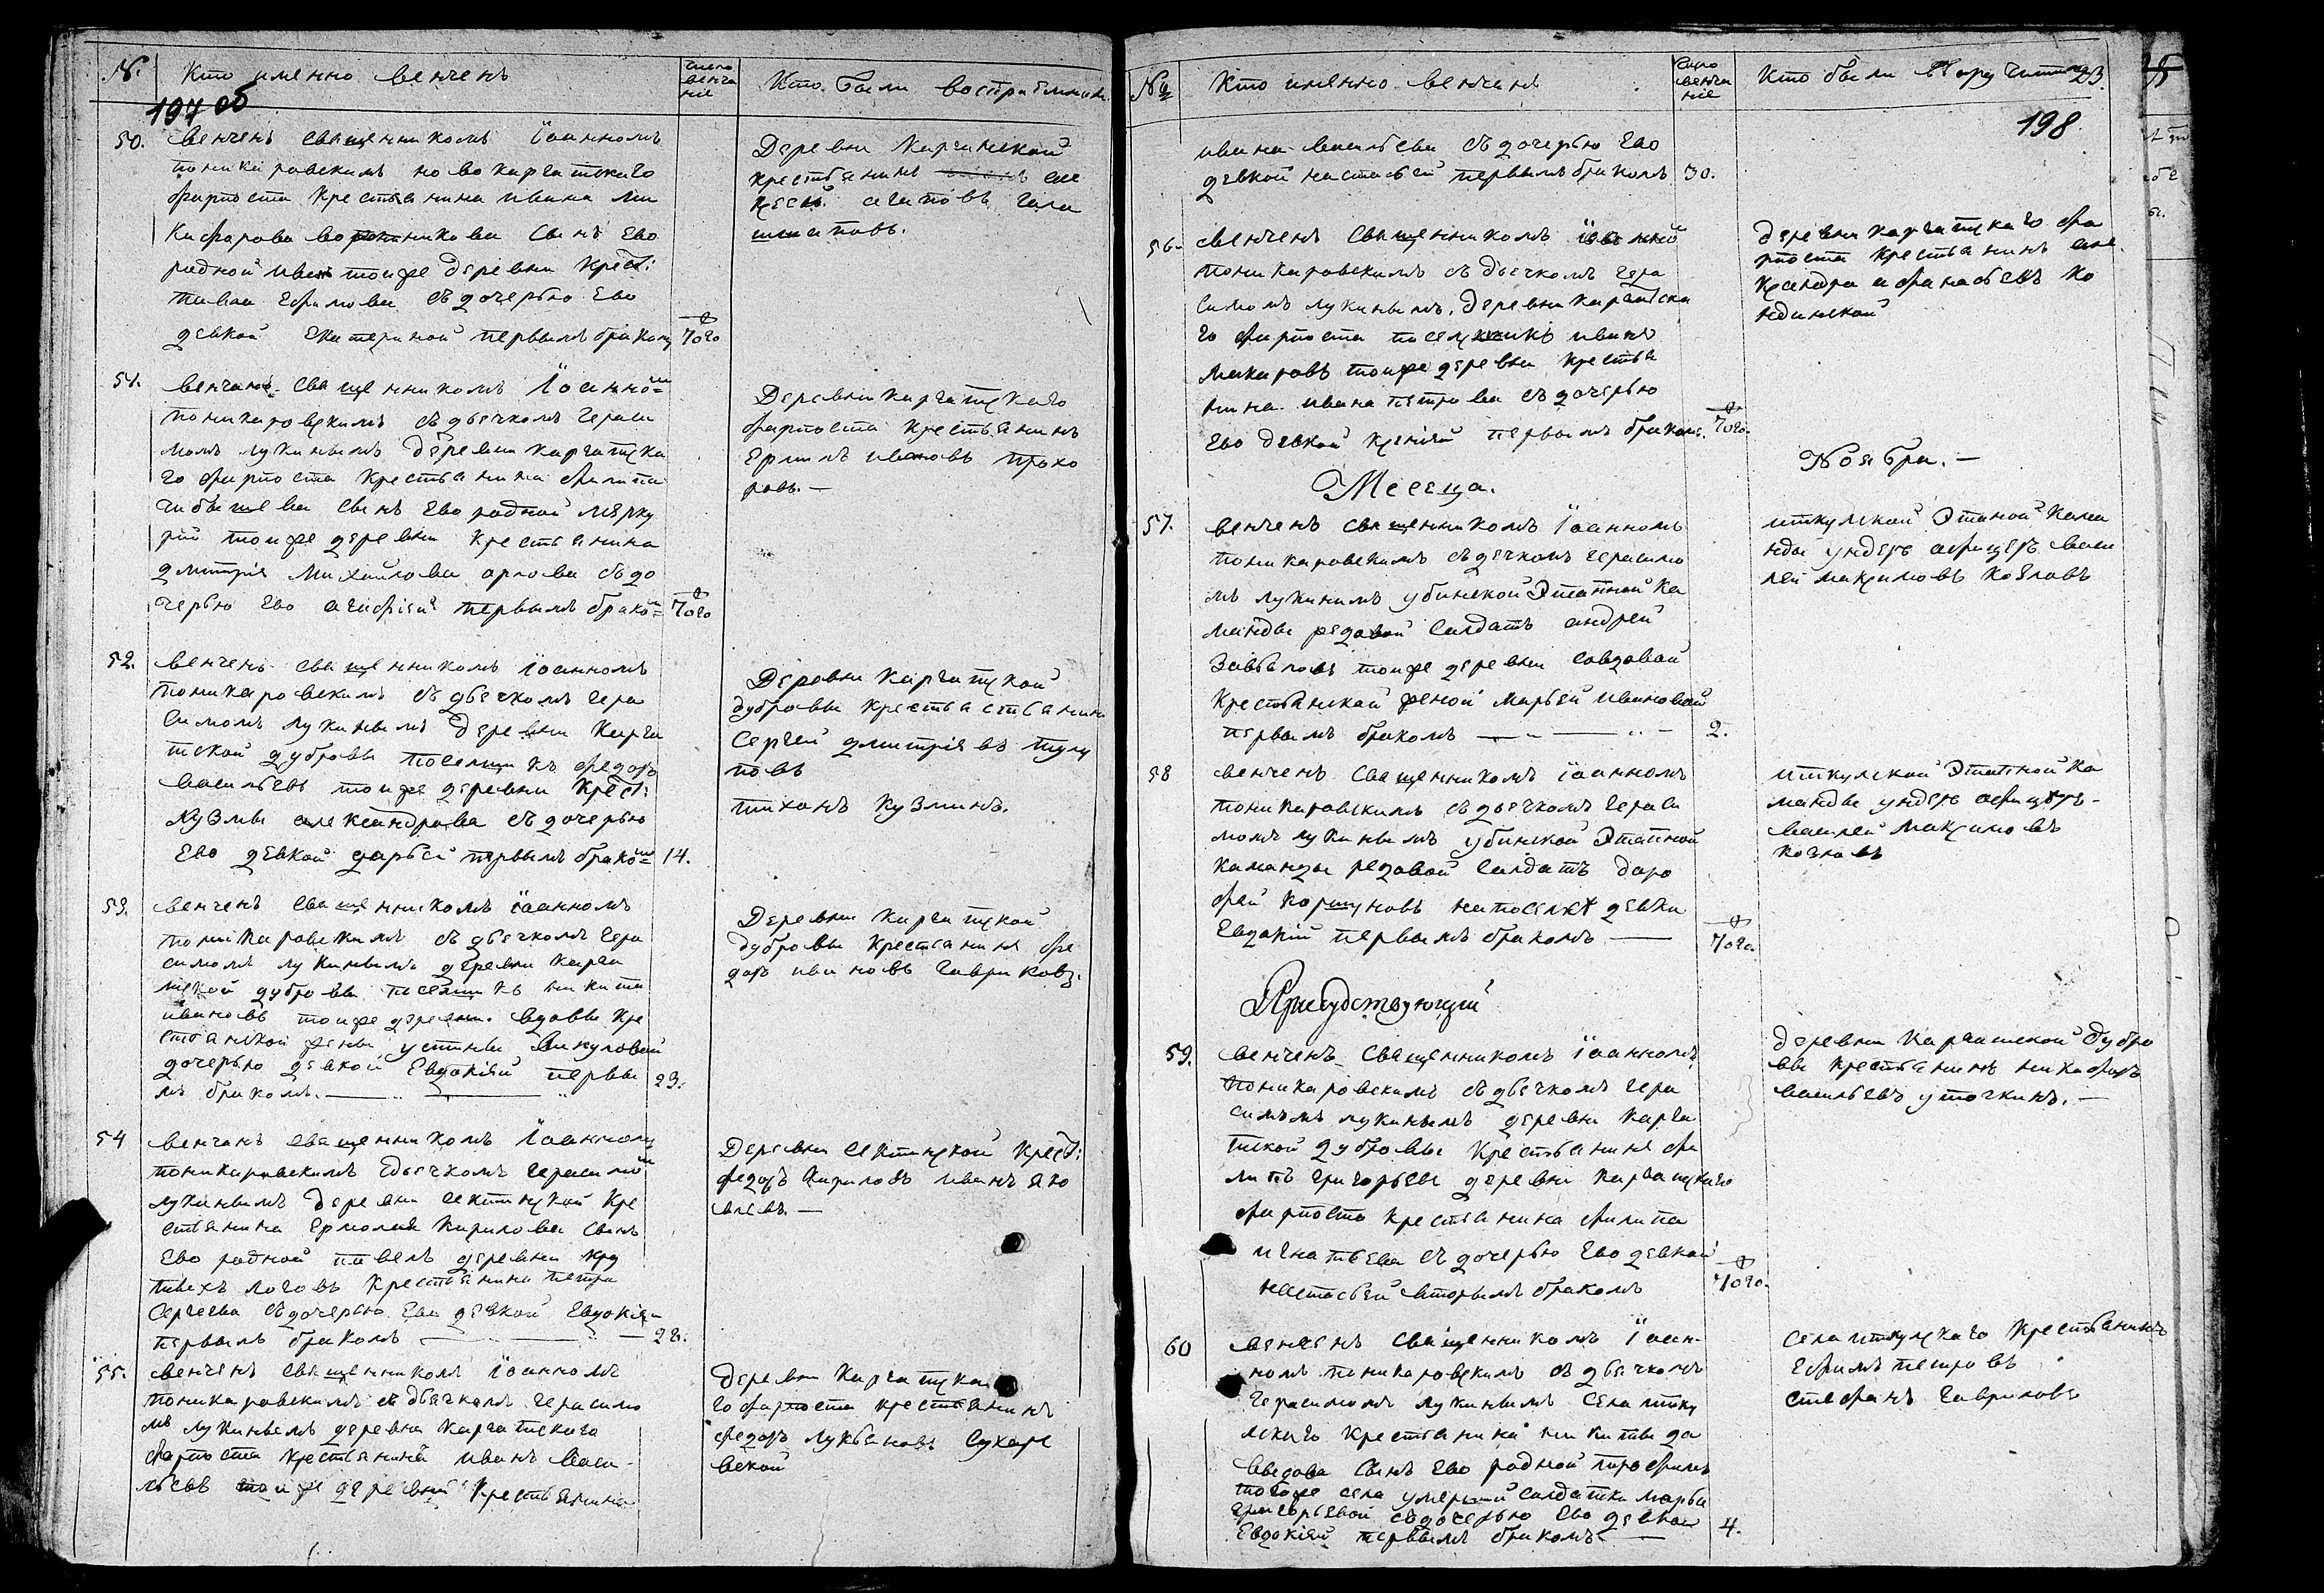 №.
Кто именно венченъ
число
венча
ніе
Кто были
197 об
50.
венченъ священникомъ Іоанномъ
поникаровскимъ новокаргатскаго
фарпоста крестьянина ивана
сынъ Ево
родной иванъ тойже деревни крест:
Ефимова съ дочерью Ево
девкой Екатериной первымъ бракомъ
7 го
Деревни Каргатской
крестьянинъ але
ксей агаповъ гала
51.
венчанъ священникомъ Іоанномъ
поникаровскимъ съ дьечкомъ гераси
момъ лукинымъ деревни каргатска
го фарпоста крестьянина филипа
чебышева сынъ Ево родной мерку
рій тойже деревни крестьянина
дмитрія Михайлова орлова съ до
черью Ево агафіей первымъ бракомъ
7 го
Деревни каргатскаго
фарпоста крестьянинъ
Ермилъ ивановъ прохо
ровъ. —
52.
венченъ священникомъ Іоанномъ
поникаровскимъ съ дьечкомъ гера
симомъ лукинымъ деревни карга
тской дубровы поселщикъ федоръ
васильевъ тойже деревни крест:
Кузмы александрова съ дочерью
Ево девкой дарьей первымъ бракомъ
14.
Деревни каргатской
дубровы крестьянинъ
Сергей дмитріевъ тулу
повъ
тиханъ Кузминъ.
53.
венченъ священникомъ іоанномъ
поникаровскимъ съ дьечкомъ гера
симомъ лукинымъ деревни карга
тской дубровы поселщикъ никита
ивановъ тойже деревни вдовы кре
стьянской жены устиньи Викуловой
дочерью девкой Евдокіей первы
мъ бракомъ. —
23.
Деревни каргатской
дубровы крестьянинъ фе
доръ ивановъ гавриковъ.
54
венчанъ священникомъ Іоанномъ
поникаровскимъ сдьечкомъ герасимомъ
лукинымъ деревни сектинской кре
стьянина Ермолая Кирилова сынъ
Ево родной павелъ деревни кру
тыхъ логовъ крестьянина петра
сергеева съ дочерью Ево девкой Евдокіей
первымъ бракомъ —
28.
Деревни сектинской крест:
федоръ Кириловъ иванъ яко
влевъ. —
55.
венченъ священникомъ іоанномъ
поникаровскимъ съ дьячкомъ герасимо
мъ лукинымъ деревни каргатскаго
фарпоста крестьянинъ иванъ васи-
льевъ тойже деревни крестьянина
деревни каргатска
го фарпоста крестьянинъ
федоръ лукьяновъ сухаре
вской
№
Кто именно венчанъ
число
венча
ніе
Кто были поручители
23.
198
ивана васильева съ дочерью Ево
девкой настасьей первымъ бракомъ
30.
56.
венченъ священникомъ іоанномъ
поникаровскимъ съ дьечкомъ гера
симомъ лукинымъ. деревни каргатска
го фарпоста поселщикъ иванъ
макаровъ тойже деревни крестья
нина ивана петрова съ дочерью
Ево девкой ксеніей первымъ бракомъ.
7 го.
деревни каргатскаго фа
рпоста крестьянинъ але
ксандра афанасьевъ ко
ндинской
Месеца.
Ноября. —
57.
венченъ священникомъ Іоанномъ
поникаровскимъ съ дечкомъ герасимо
мъ лукинимъ убинской Этапной ка
манды редовой салдатъ андрей
завьяловъ тойже деревни совдовой
крестьянской женой марьей ивановой
первымъ бракомъ —
2.
иткулской Этапной кама
нды ундеръ афицеръ васи
лей максимовъ козловъ
58
венченъ священникомъ іоанномъ
поникаровскимъ съ дьечкомъ гераси
момъ лукинымъ убинской Этапной
каманды редовой салдатъ даро
фей коршуновъ девки
Евдакіи первымъ бракомъ —
7 го.
иткулской Этапной ка
манды ундеръ афицеръ-
василей максимовъ
козловъ
Присудствующій
59.
венченъ священникомъ іоанномъ
поникаровскимъ съ дьечкомъ гера
симомъ лукинымъ деревни карга
тской дубровы крестьянинъ фи
липъ григорьевъ деревни каргатскаго
фарпоста крестьянина филипа
игнатьева съ дочерью Ево девкой
настасьей вторымъ бракомъ
7 го.
деревни каргатской дубро
вы крестьянинъ никифоръ
васильевъ уточкинъ. —
60
венченъ священникомъ Іоан-
номъ поникаровскимъ съ дьячкомъ
герасимомъ лукинымъ села итку
лскаго крестьянина никиты да
выдова сынъ Ево родной
тогоже села умершей салдатки марьи
григорьевой съдочерью Ево девкой
Евдокіей первымъ бракомъ —
4.
села иткулскаго крестьянинъ
Ефимъ петровъ
стефанъ гавриловъ